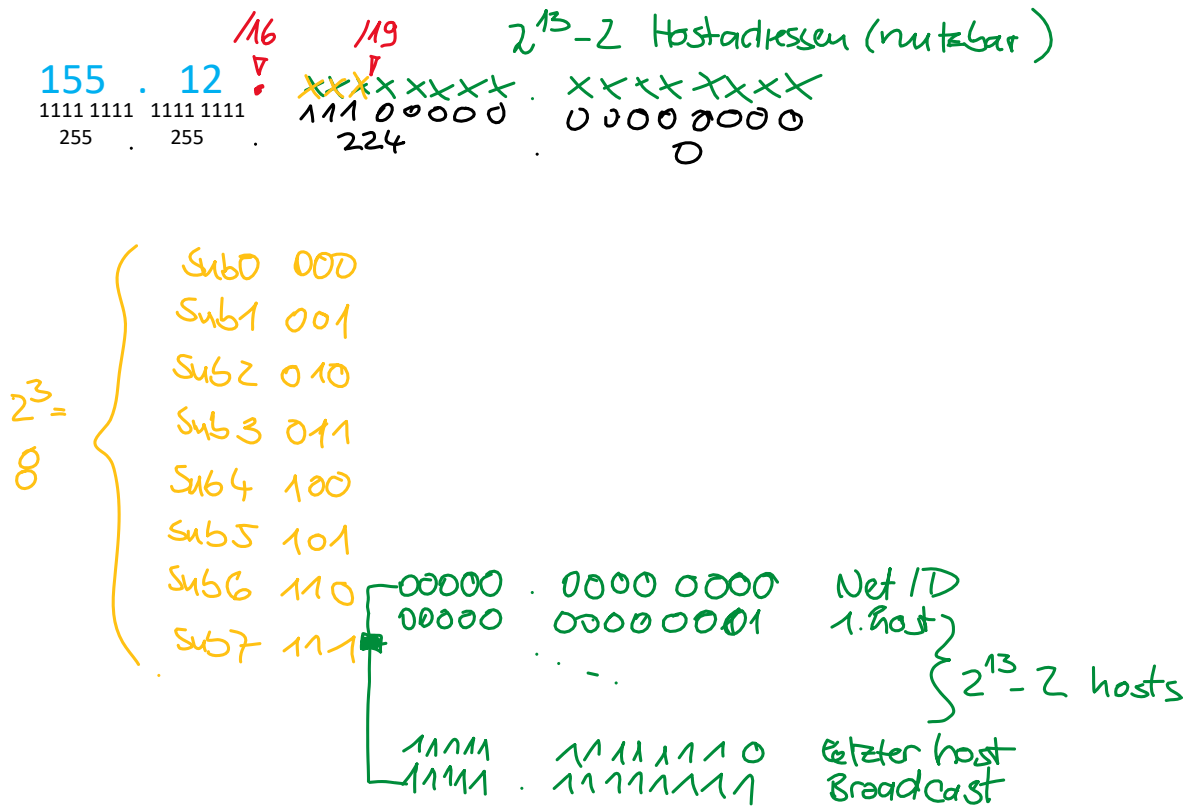 /16 /19 2^13-2 Hostadressen (nutzbar)
155 . 12 . xxxxxxxx . xxxxxxxx
1111 1111 1111 1111 111 00000 0000 0000
255 . 255 . 224 . 0
Sub0 000
Sub1 001
Sub2 010
2^3= Sub3 011
8 Sub4 100
Sub5 101
Sub6 110 00000 . 0000 0000 Net ID
00000 00000001 1. host
Sub7 111
2^13-2 hosts
11111 1111111 0 letzter host
11111 . 11111111 Broadcast